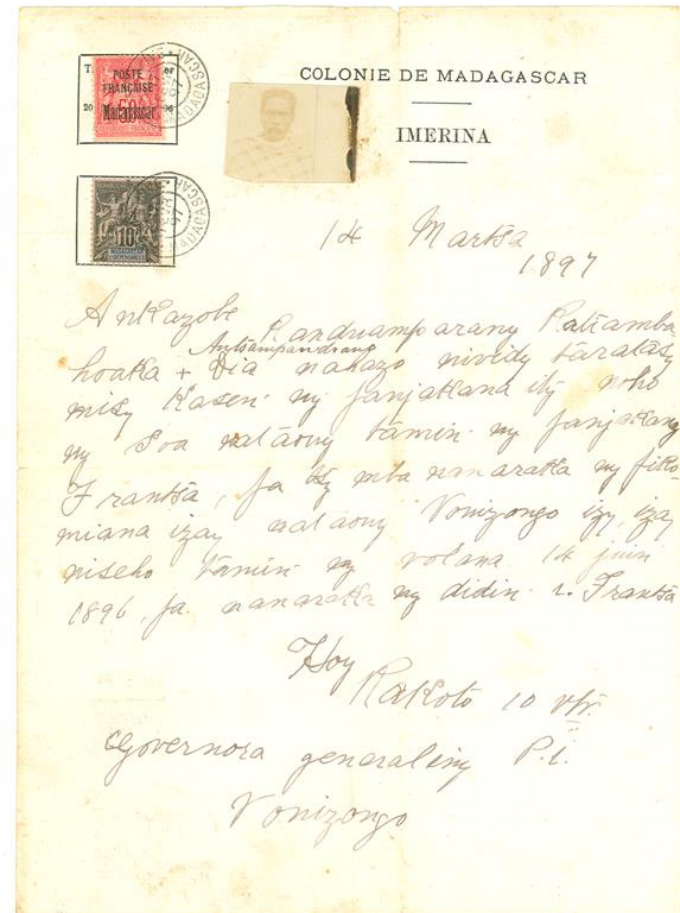 COLONIE DE MADAGASCAR
IMERINA
POSTE
FRANÇAISE
Madagascar
10
14 Martsa
1897
Ankazobe Randriamparany Ratsimba
Antsampandrano
hoatka + Dia nahazo nividy taratasy
misy Kasen' ny fanjakana izy noho
ny Soa nataony tamin' ny fanjakany
Frantsa, fa tsy mba nanaraka ny fiko-
miana izay nataony Vonizongo izy, izay
niseho tamin' ny volana 14 juin
1896, fa nanaraka ny didin' i Frantsa
Hoy
Rakoto 10 vtr.
Governora generaliny P.i.
Vonizongo